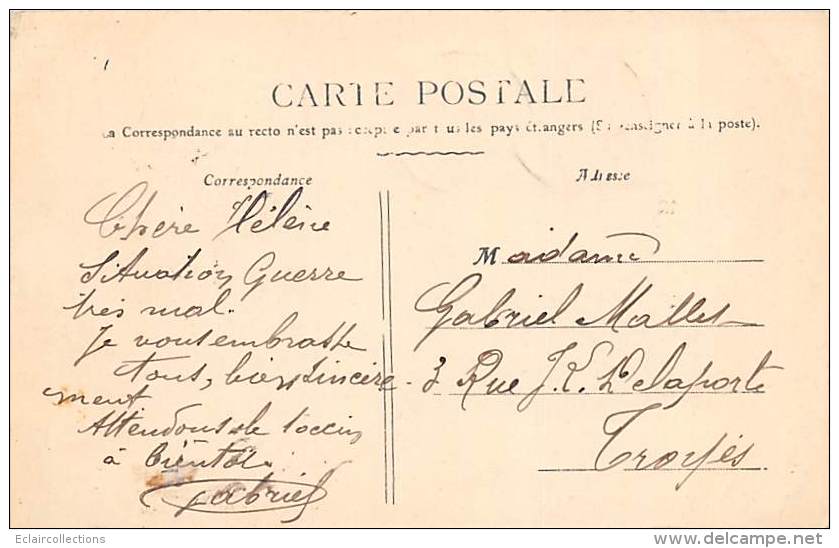 CARTE POSTALE
La Correspondance au recto n'est pas acceptée par tous les pays étrangers (Se renseigner à la poste).
Correspondance
Adresse
Chère Hélène
Situation Guerre
très mal.
Je vous embrasse
tous, bien sincère-
ment
Attendons le toccin
à bientôt.
Gabriel
Madame
Gabriel Mallet
3 Rue J. K. Delaporte
Troyes
Eclaircollections
www.delcampe.net